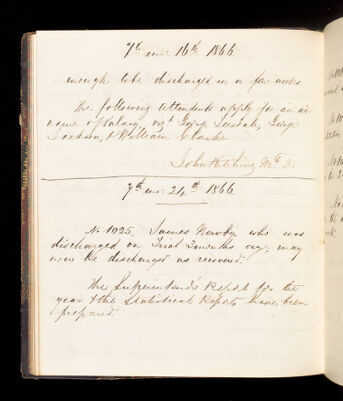 7th mo: 16th 1866
enough to be discharged in a few weeks.
The following attendants apply for an ad-
vance of Salary, viz George, George
Jackson, & William Clarke
John Kitching M.D.
7th mo: 24th 1866
No 1025. James Newby, who was
discharged on Trial 2 months ago, may
now be discharged as recovered.
The Superintend's Report for the
year & the Statistical Reports have been
prepared.